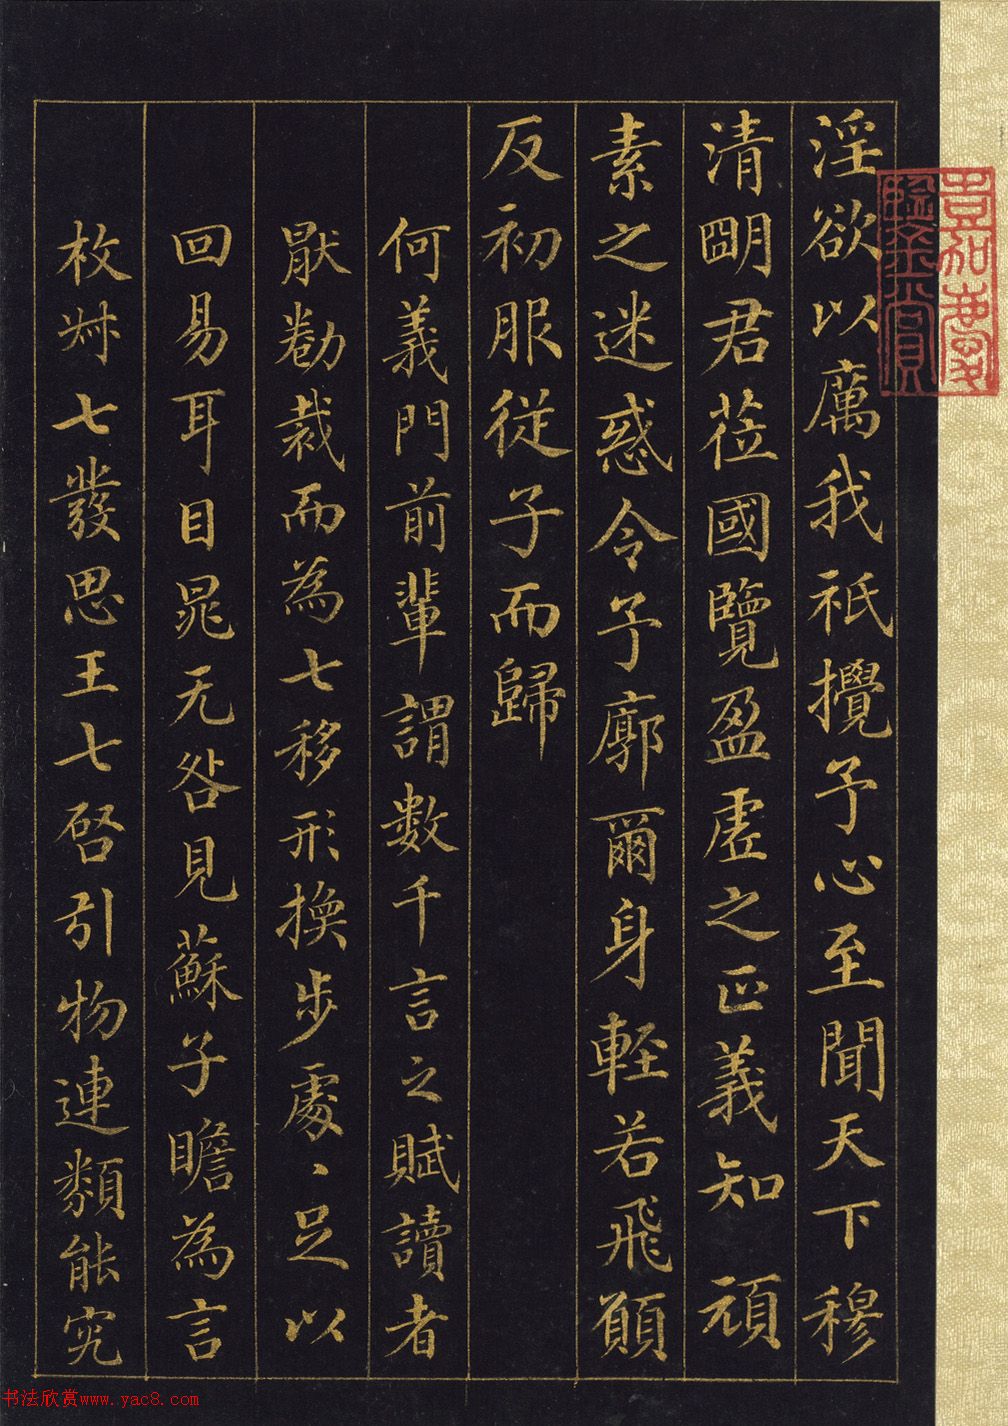 淫欲以厲我祇攪予心至聞天下穆
清朙君莅國覽盈虛之正義知頑
素之迷惑令予廓爾身輕若飛願
反初服從子而歸
何義門前輩謂數千言之賦讀者
厭勌裁而為七移形換步處〻足以
回易耳目晁无咎見蘇子瞻為言
枚叔七發思王七啓引物連類能究
嘉慶鑑賞
书法欣赏www.yac8.com